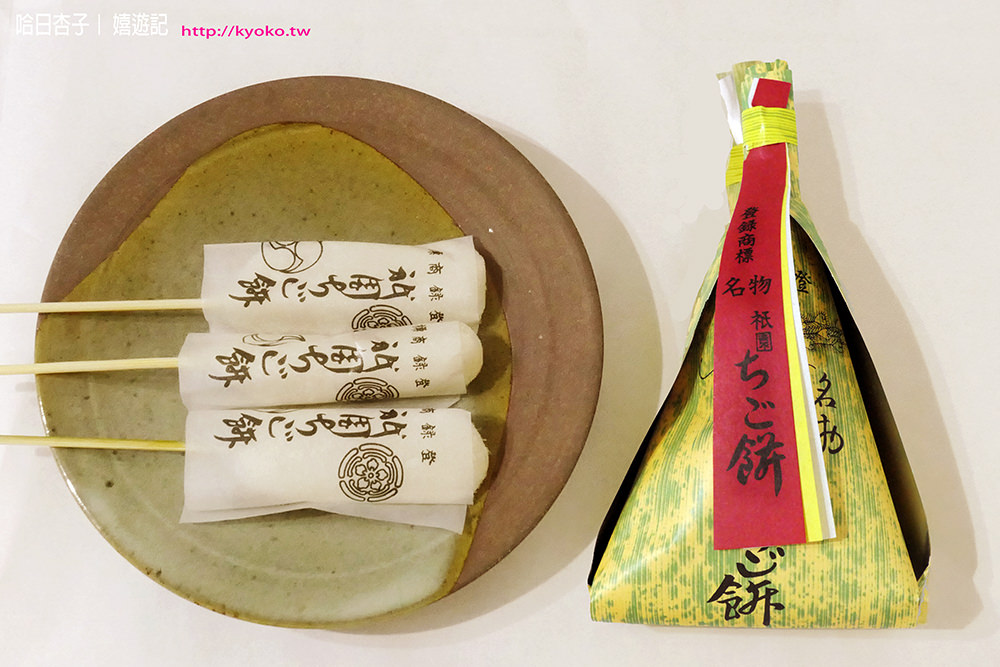 哈日杏子| 嬉遊記 http://kyoko.tw
商 錄 登
祇園ちご餅
商 錄 登
祇園ちご餅
商 錄 登
祇園ちご餅
登録商標
名物
祇園
ちご餅
登
名物
ご餅